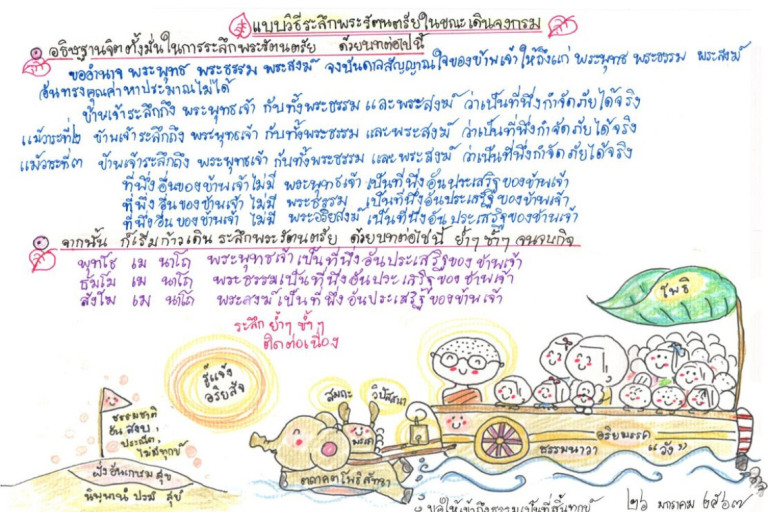 แบบวิธีระลึกพระรัตนตรัยในขณะเดินจงกรม
อธิษฐานจิตตั้งมั่นในการระลึกพระรัตนตรัย ด้วยบทต่อไปนี้
ขออำนาจ พระพุทธ พระธรรม พระสงฆ์ จงบันดาลสัญญาณใจของข้าพเจ้าให้ถึงแก่ พระพุทธ พระธรรม พระสงฆ์
อันทรงคุณค่าหาประมาณไม่ได้
ข้าพเจ้าระลึกถึง พระพุทธเจ้า กับทั้งพระธรรม และพระสงฆ์ ว่าเป็นที่พึ่งกำจัดภัยได้จริง
แม้วาระที่๒ ข้าพเจ้าระลึกถึง พระพุทธเจ้า กับทั้งพระธรรม และพระสงฆ์ ว่าเป็นที่พึ่งกำจัดภัยได้จริง
แม้วาระที่๓ ข้าพเจ้าระลึกถึง พระพุทธเจ้า กับทั้งพระธรรม และพระสงฆ์ ว่าเป็นที่พึ่งกำจัดภัยได้จริง
ที่พึ่งอื่นของข้าพเจ้าไม่มี พระพุทธเจ้า เป็นที่พึ่งอันประเสริฐของข้าพเจ้า
ที่พึ่งอื่นของข้าพเจ้า ไม่มี พระธรรม เป็นที่พึ่งอันประเสริฐของข้าพเจ้า
ที่พึ่งอื่นของข้าพเจ้า ไม่มี พระอริยสงฆ์ เป็นที่พึ่งอันประเสริฐของข้าพเจ้า
จากนั้น ก็เริ่มก้าวเดิน ระลึกพระรัตนตรัย ด้วยบทต่อไปนี้ ย้ำๆ ซ้ำๆ จนจบกิจ
พุทโธ เม นาโถ พระพุทธเจ้าเป็นที่พึ่งอันประเสริฐของข้าพเจ้า
ธัมโม เม นาโถ พระธรรมเป็นที่พึ่งอันประเสริฐของข้าพเจ้า
สังโฆ เม นาโถ พระสงฆ์เป็นที่พึ่งอันประเสริฐของข้าพเจ้า
ระลึก ย้ำๆ ซ้ำๆ
ติดต่อเนื่อง
โพธิ
รู้แจ้ง
อริยสัจ
สมถะ
วิปัสสนา
มรรค
ธรรมชาติ
อัน สงบ,
ประณีต,
ไม่มีทุกข์
ฝั่งอันเกษม สุข
นิพพานํ ปรมํ สุขํ
ตถาคตโพธิสัทธา
ธรรมนาวา
อริยมรรค
"วัง"
ให้เข้าถึงธรรมเป็นที่สิ้นทุกข์
๒๖ มกราคม ๒๕๖๗